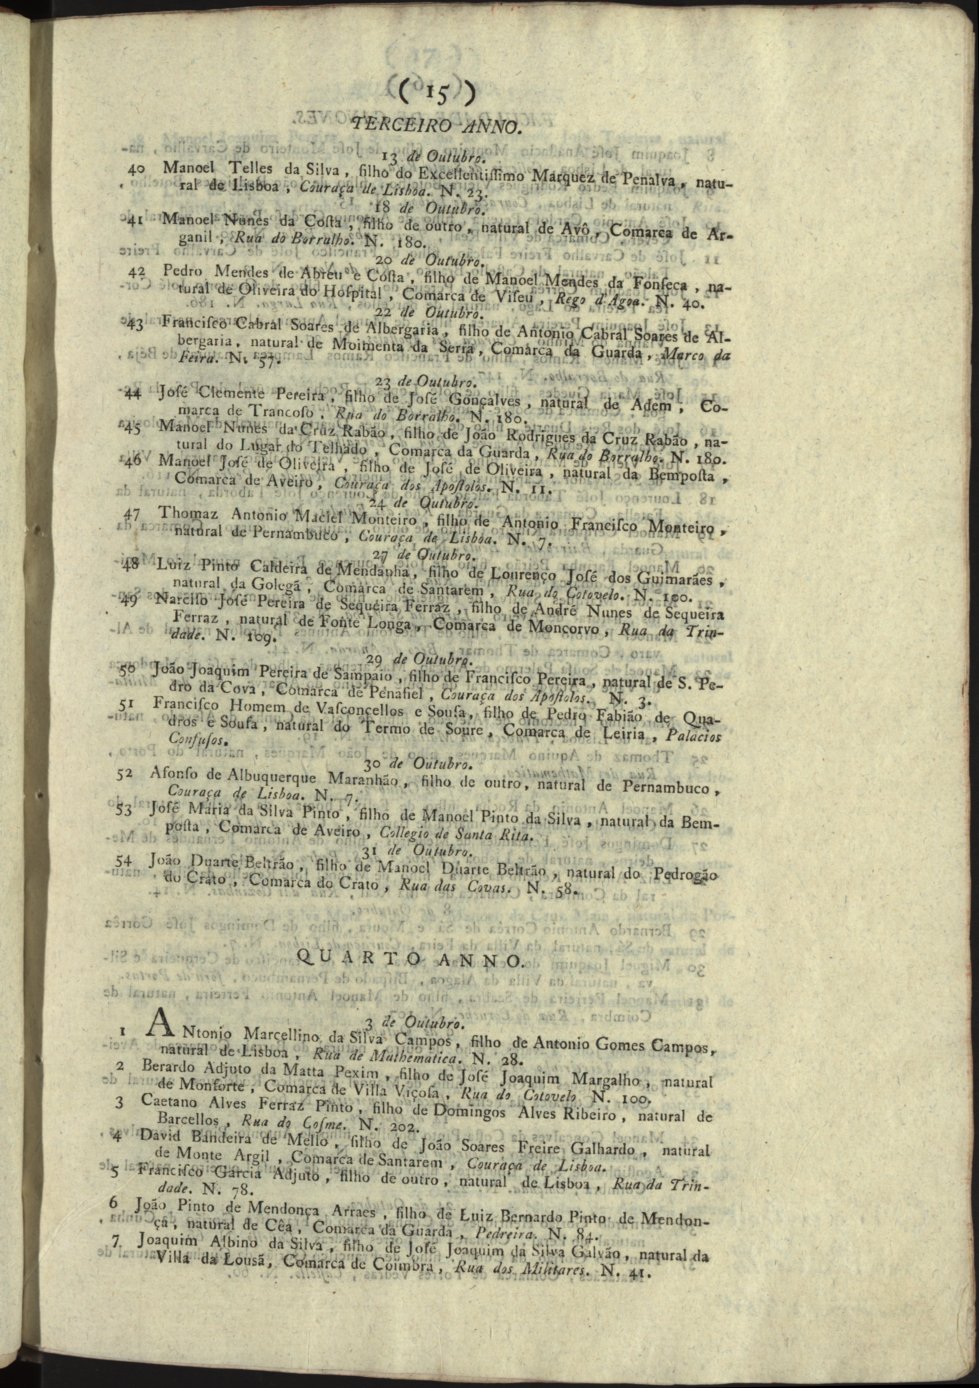 ( 15 )
TERCEIRO ANNO.
13 de Outubro.
40 Manoel Telles da Silva, filho do Excellentiſſimo Marquez de Penalva, natu-
ral de Lisboa, Couraça de Lisboa. N. 23.
18 de Outubro.
41 Manoel Nunes da Coſta, filho de outro, natural de Avô, Comarca de Ar-
ganil, Rua do Borralho. N. 180.
20 de Outubro.
42 Pedro Mendes de Abreu e Coſta, filho de Manoel Mendes da Fonſeca, na-
tural de Oliveira do Hoſpital, Comarca de Viſeu, Rego d'Agoa. N. 40.
22 de Outubro.
43 Franciſco Cabral Soares de Albergaria, filho de Antonio Cabral Soares de Al-
bergaria, natural de Moimenta da Serra, Comarca da Guarda, Marco da
Feira. N. 57.
23 de Outubro.
44 Joſé Clemente Pereira, filho de Joſé Gonçalves, natural de Adem, Co-
marca de Trancoſo, Rua do Borralho. N. 180.
45 Manoel Nunes da Cruz Rabão, filho de João Rodrigues da Cruz Rabão, na-
tural do Lugar do Telhado, Comarca da Guarda, Rua do Borralho. N. 180.
46 Manoel Joſé de Oliveira, filho de Joſé de Oliveira, natural da Bempoſta,
Comarca de Aveiro, Couraça dos Apoſtolos. N. 11.
24 de Outubro.
47 Thomaz Antonio Maciel Monteiro, filho de Antonio Franciſco Monteiro,
natural de Pernambuco, Couraça de Lisboa. N. 7.
27 de Outubro.
48 Luiz Pinto Caldeira de Mendanha, filho de Lourenço Joſé dos Guimarães,
natural da Golegã, Comarca de Santarem, Rua do Cotovelo. N. 100.
49 Narciſo Joſé Pereira de Sequeira Ferraz, filho de André Nunes de Sequeira
Ferraz, natural de Fonte Longa, Comarca de Moncorvo, Rua da Trin-
dade. N. 109.
29 de Outubro.
50 João Joaquim Pereira de Sampaio, filho de Franciſco Pereira, natural de S. Pe-
dro da Cova, Comarca de Penafiel, Couraça dos Apoſtolos. N. 3.
51 Franciſco Homem de Vaſconcellos e Souſa, filho de Pedro Fabião de Qua-
dros e Souſa, natural do Termo de Soure, Comarca de Leiria, Palacios
Confuſos.
30 de Outubro.
52 Afonſo de Albuquerque Maranhão, filho de outro, natural de Pernambuco,
Couraça de Lisboa. N. 7.
53 Joſé Maria da Silva Pinto, filho de Manoel Pinto da Silva, natural da Bem-
poſta, Comarca de Aveiro, Collegio de Santa Rita.
31 de Outubro.
54 João Duarte Beltrão, filho de Manoel Duarte Beltrão, natural do Pedrogão
do Crato, Comarca do Crato, Rua das Covas. N. 58.
QUARTO ANNO.
3 de Outubro.
1 ANtonio Marcellino da Silva Campos, filho de Antonio Gomes Campos,
natural de Lisboa, Rua de Mathematica. N. 28.
2 Berardo Adjuto da Matta Pexim, filho de Joſé Joaquim Margalho, natural
de Monforte, Comarca de Villa Viçoſa, Rua do Cotovelo N. 100.
3 Caetano Alves Ferraz Pinto, filho de Domingos Alves Ribeiro, natural de
Barcellos, Rua do Coſme. N. 202.
4 David Bandeira de Mello, filho de João Soares Freire Galhardo, natural
de Monte Argil, Comarca de Santarem, Couraça de Lisboa.
5 Franciſco Garcia Adjuto, filho de outro, natural de Lisboa, Rua da Trin-
dade. N. 78.
6 João Pinto de Mendonça Arraes, filho de Luiz Bernardo Pinto de Mendon-
ça, natural de Cêa, Comarca da Guarda, Pedreira. N. 84.
7 Joaquim Albino da Silva, filho de Joſé Joaquim da Silva Galvão, natural da
Villa da Louſã, Comarca de Coimbra, Rua dos Militares. N. 41.